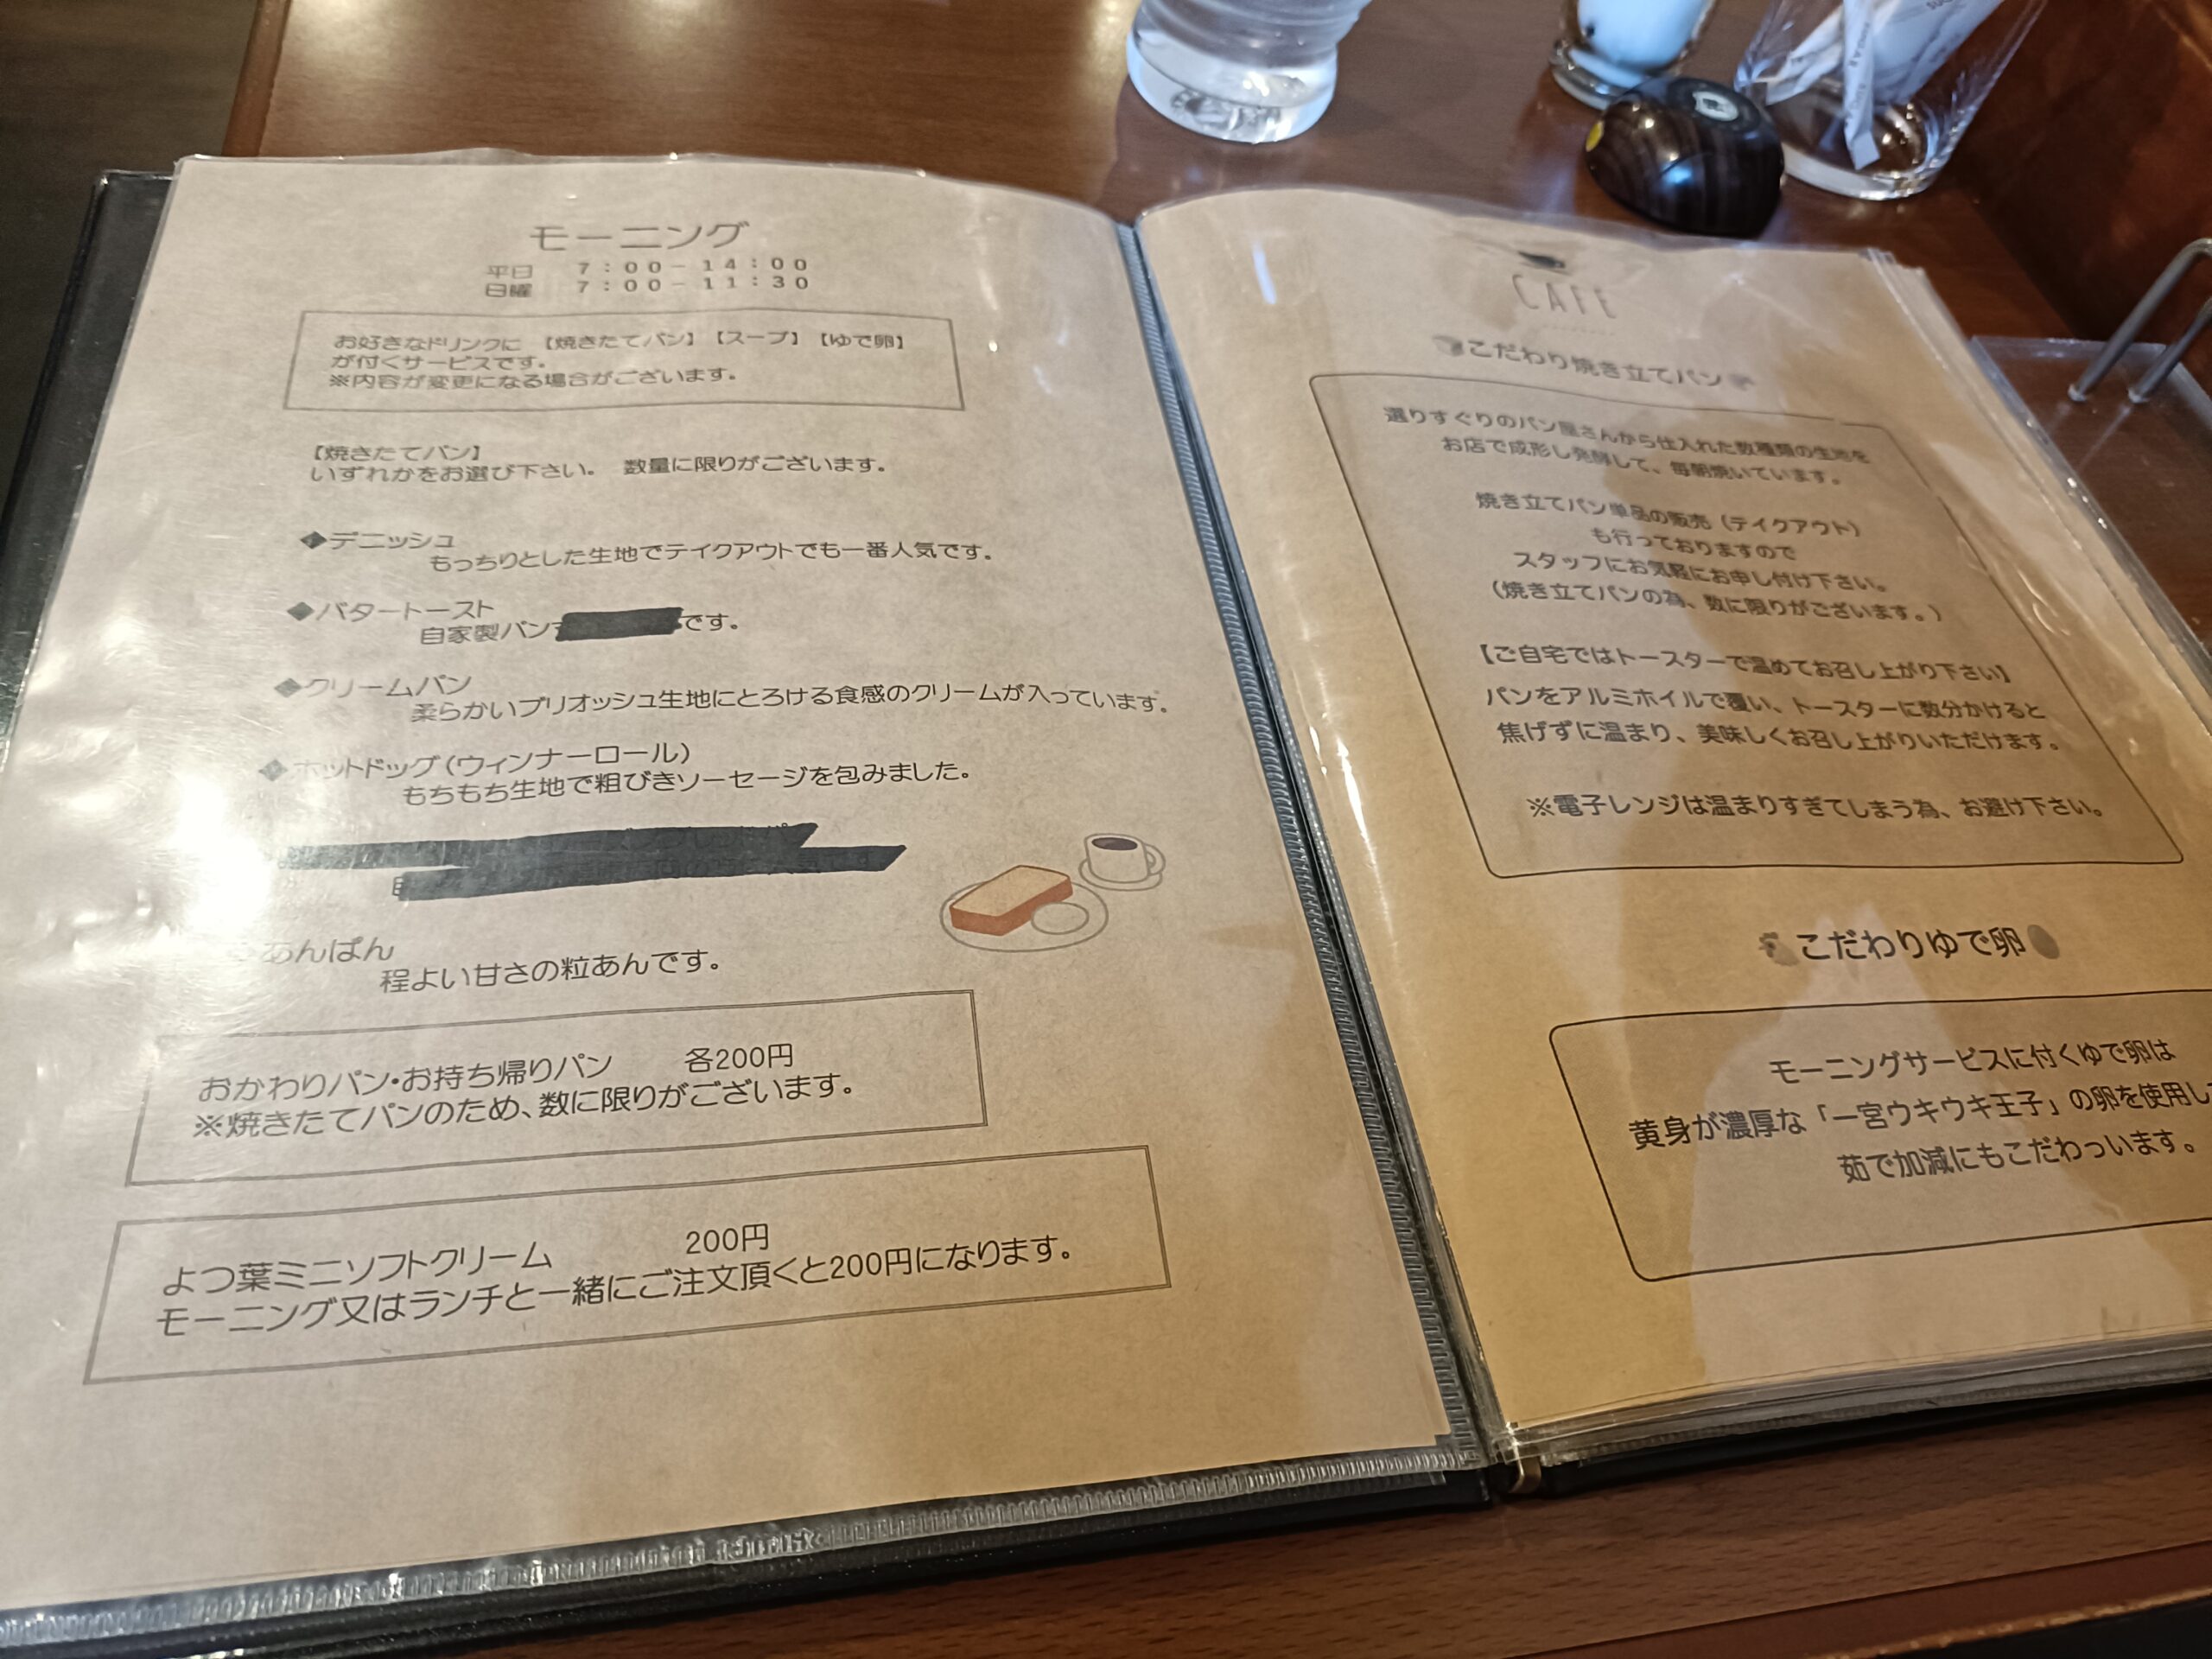 モーニング
平日　7：00－14：00
日曜　7：00－11：30
お好きなドリンクに　【焼きたてパン】【スープ】【ゆで卵】
が付くサービスです。
※内容が変更になる場合がございます。
【焼きたてパン】
いずれかをお選び下さい。　数量に限りがございます。
◆デニッシュ
もっちりとした生地でテイクアウトでも一番人気です。
◆バタートースト
自家製パン です。
◆クリームパン
柔らかいブリオッシュ生地にとろける食感のクリームが入っています。
◆ホットドッグ（ウィンナーロール）
もちもち生地で粗びきソーセージを包みました。
あんぱん
程よい甘さの粒あんです。
おかわりパン・お持ち帰りパン　各200円
※焼きたてパンのため、数に限りがございます。
よつ葉ミニソフトクリーム　200円
モーニング又はランチと一緒にご注文頂くと200円になります。
CAFE
こだわり焼き立てパン
選りすぐりのパン屋さんから仕入れた数種類の生地を
お店で成形し発酵して、毎朝焼いています。
焼き立てパン単品の販売（テイクアウト）
も行っておりますので
スタッフにお気軽にお申し付け下さい。
（焼き立てパンの為、数に限りがございます。）
【ご自宅ではトースターで温めてお召し上がり下さい】
パンをアルミホイルで覆い、トースターに数分かけると
焦げずに温まり、美味しくお召し上がりいただけます。
※電子レンジは温まりすぎてしまう為、お避け下さい。
こだわりゆで卵
モーニングサービスに付くゆで卵は
黄身が濃厚な「一宮ウキウキ王子」の卵を使用し
茹で加減にもこだわっいます。